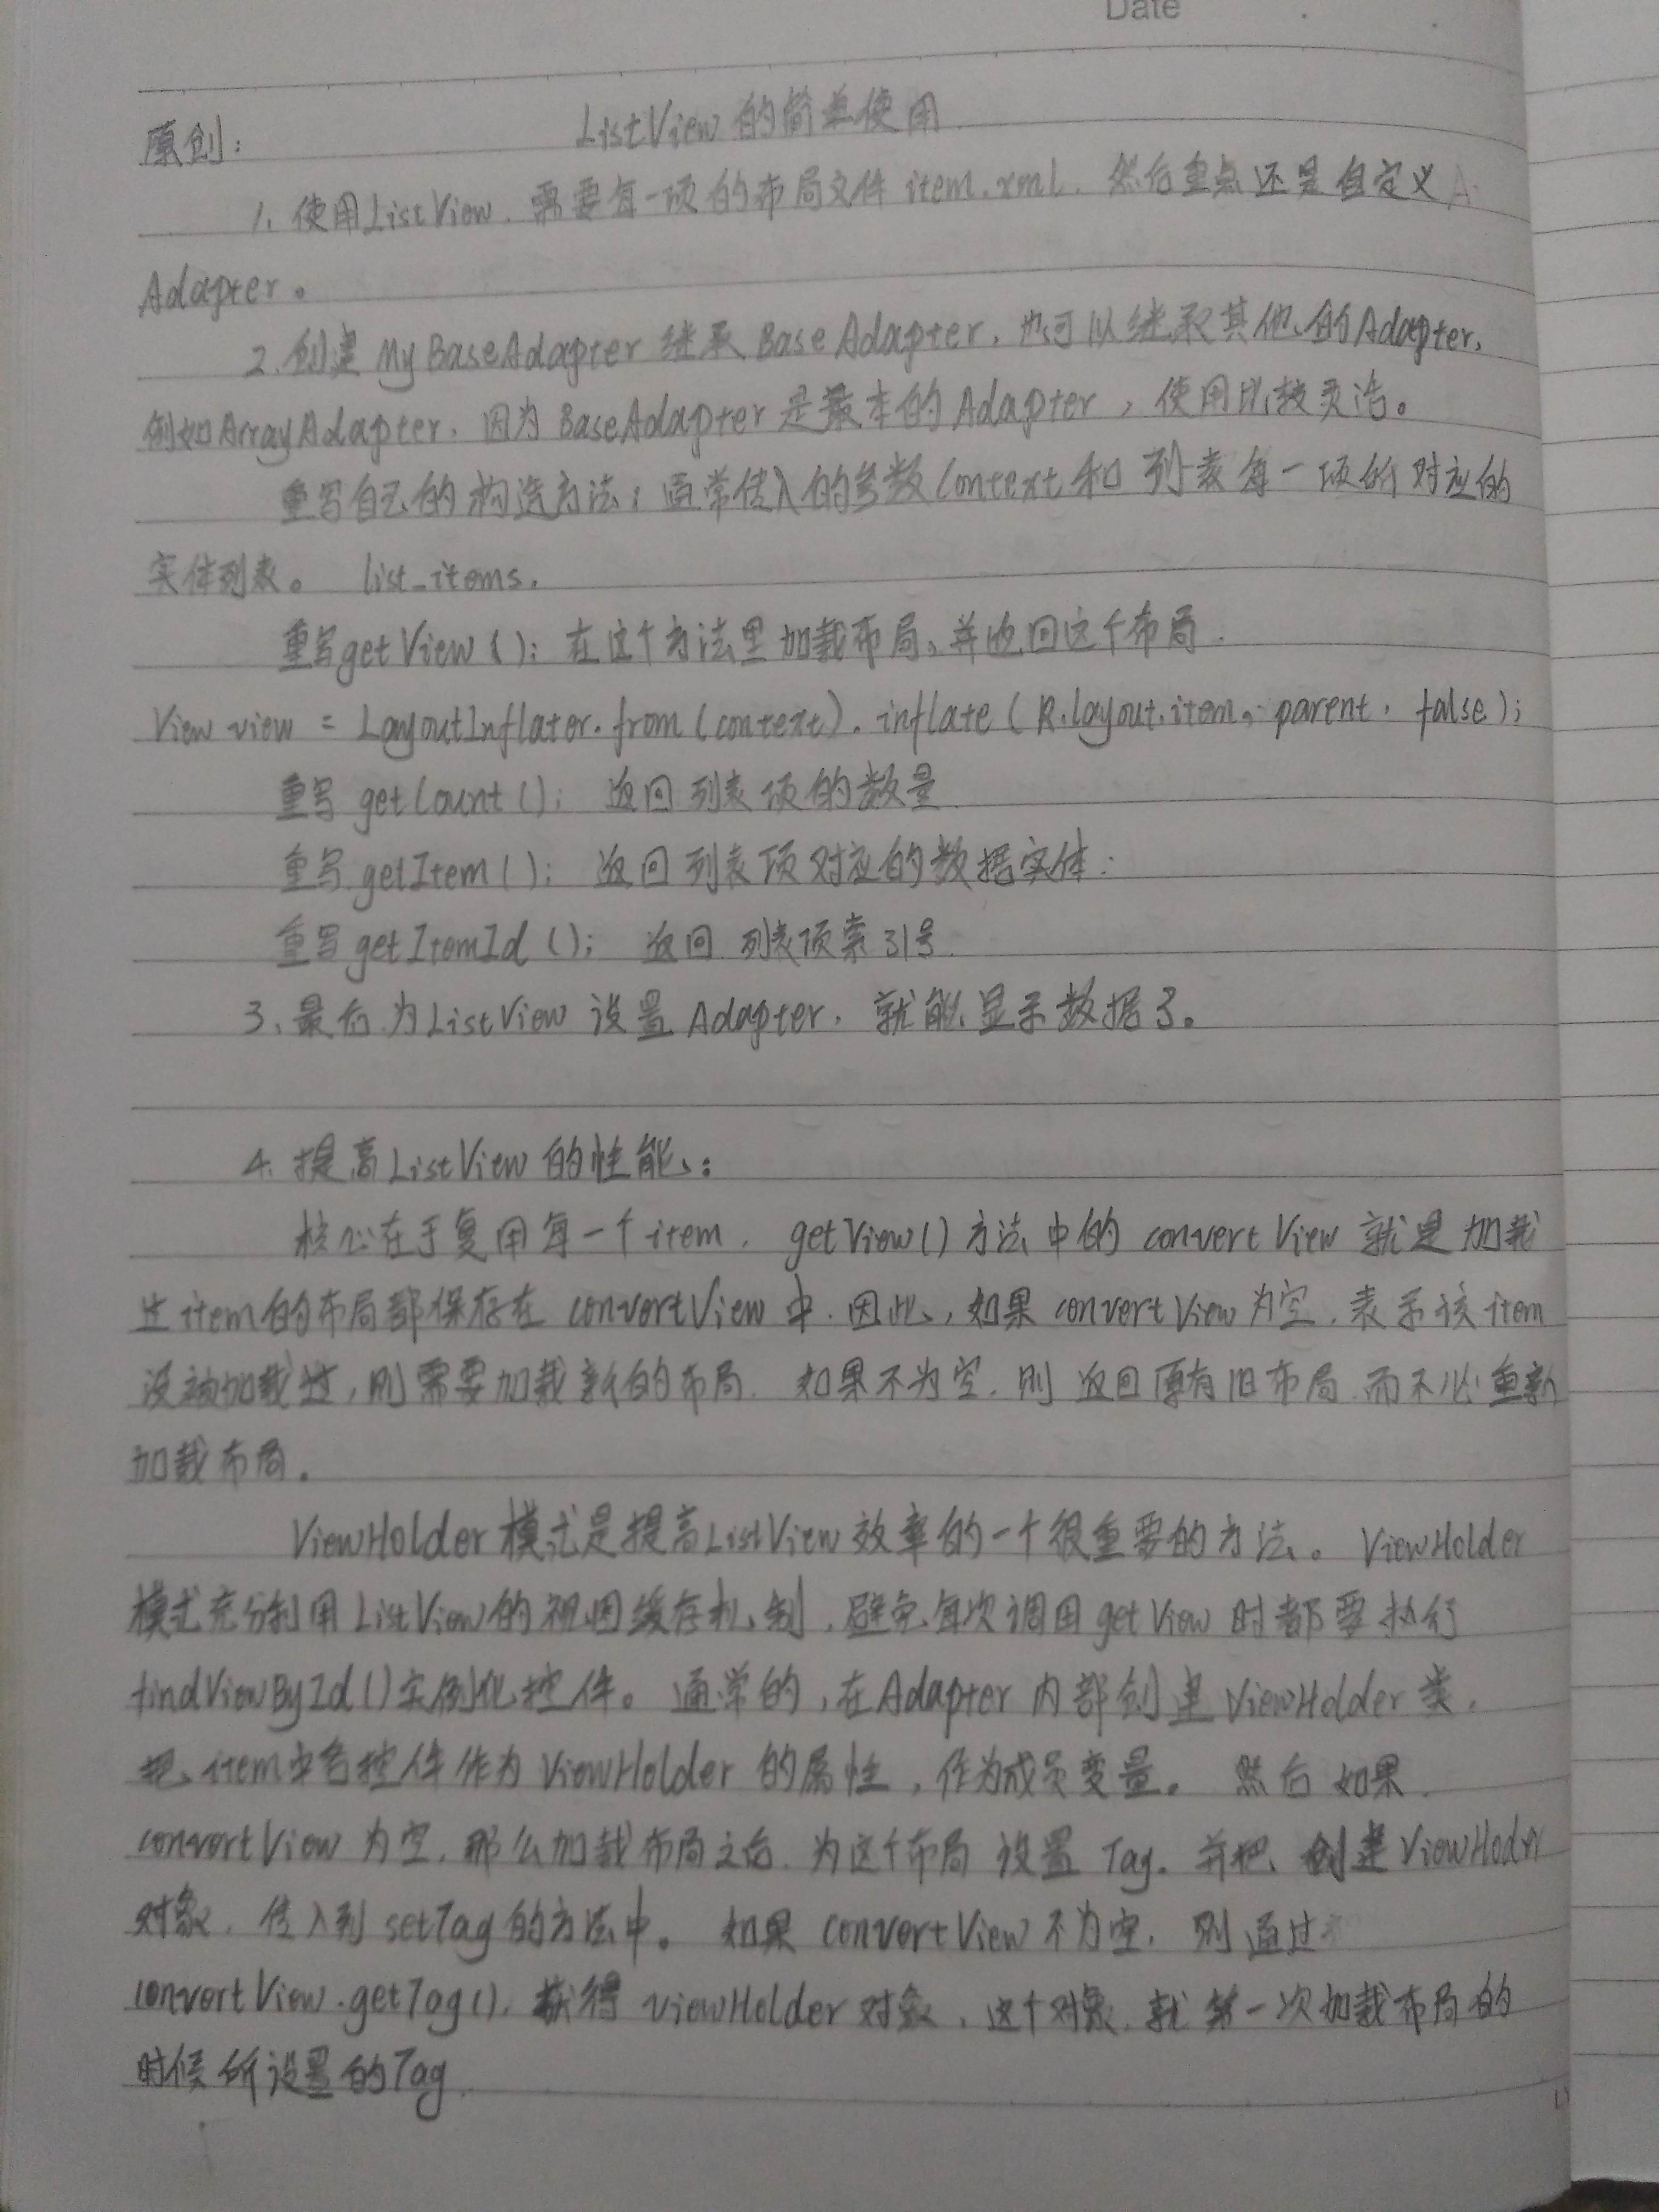 Date
ListView的简单使用
原创:
1. 使用ListView,需要每一项的布局文件item.xml,然后重点还是自定义A
Adapter。
2.创建MyBaseAdapter继承BaseAdapter,也可以继承其他的Adapter,
例如ArrayAdapter,因为BaseAdapter是最本的Adapter,使用比较灵活。
重写自己的构造方法;通常传入的参数Context和列表每一项所对应的
实体列表。 list_items.
重写getView():在这个方法里加载布局,并返回这个布局.
View view = LayoutInflator.from(context).inflate(R.layout.item, parent, false);
重写getCount(): 返回列表项的数量
重写getItem(): 返回列表项对应的数据实体.
重写getItemId(): 返回列表项索引号.
3、最后为ListView设置Adapter,就能显示数据了。
4. 提高ListView的性能:
核心在于复用每一个item. getView()方法中的convertView就是加载
过item的布局都保存在convertView中.因此,如果convertView为空,表示该item
没被加载过,则需要加载新的布局. 如果不为空,则返回原有旧布局,而不必重新
加载布局.
ViewHolder模式是提高ListView效率的一个很重要的方法。ViewHolder
模式充分利用ListView的视图缓存机制,避免每次调用getView时都要执行
findViewById()实例化控件。通常的,在Adapter内部创建ViewHolder类,
把item中各控件作为ViewHolder的属性,作为成员变量。 然后如果
convertView为空,那么加载布局之后,为这个布局设置Tag.并把创建ViewHodr
对象,传入到setTag的方法中。如果convertView不为空,则通过
convertView.getTag(),获得viewHolder对象,这个对象,就第一次加载布局的
时候所设置的Tag.